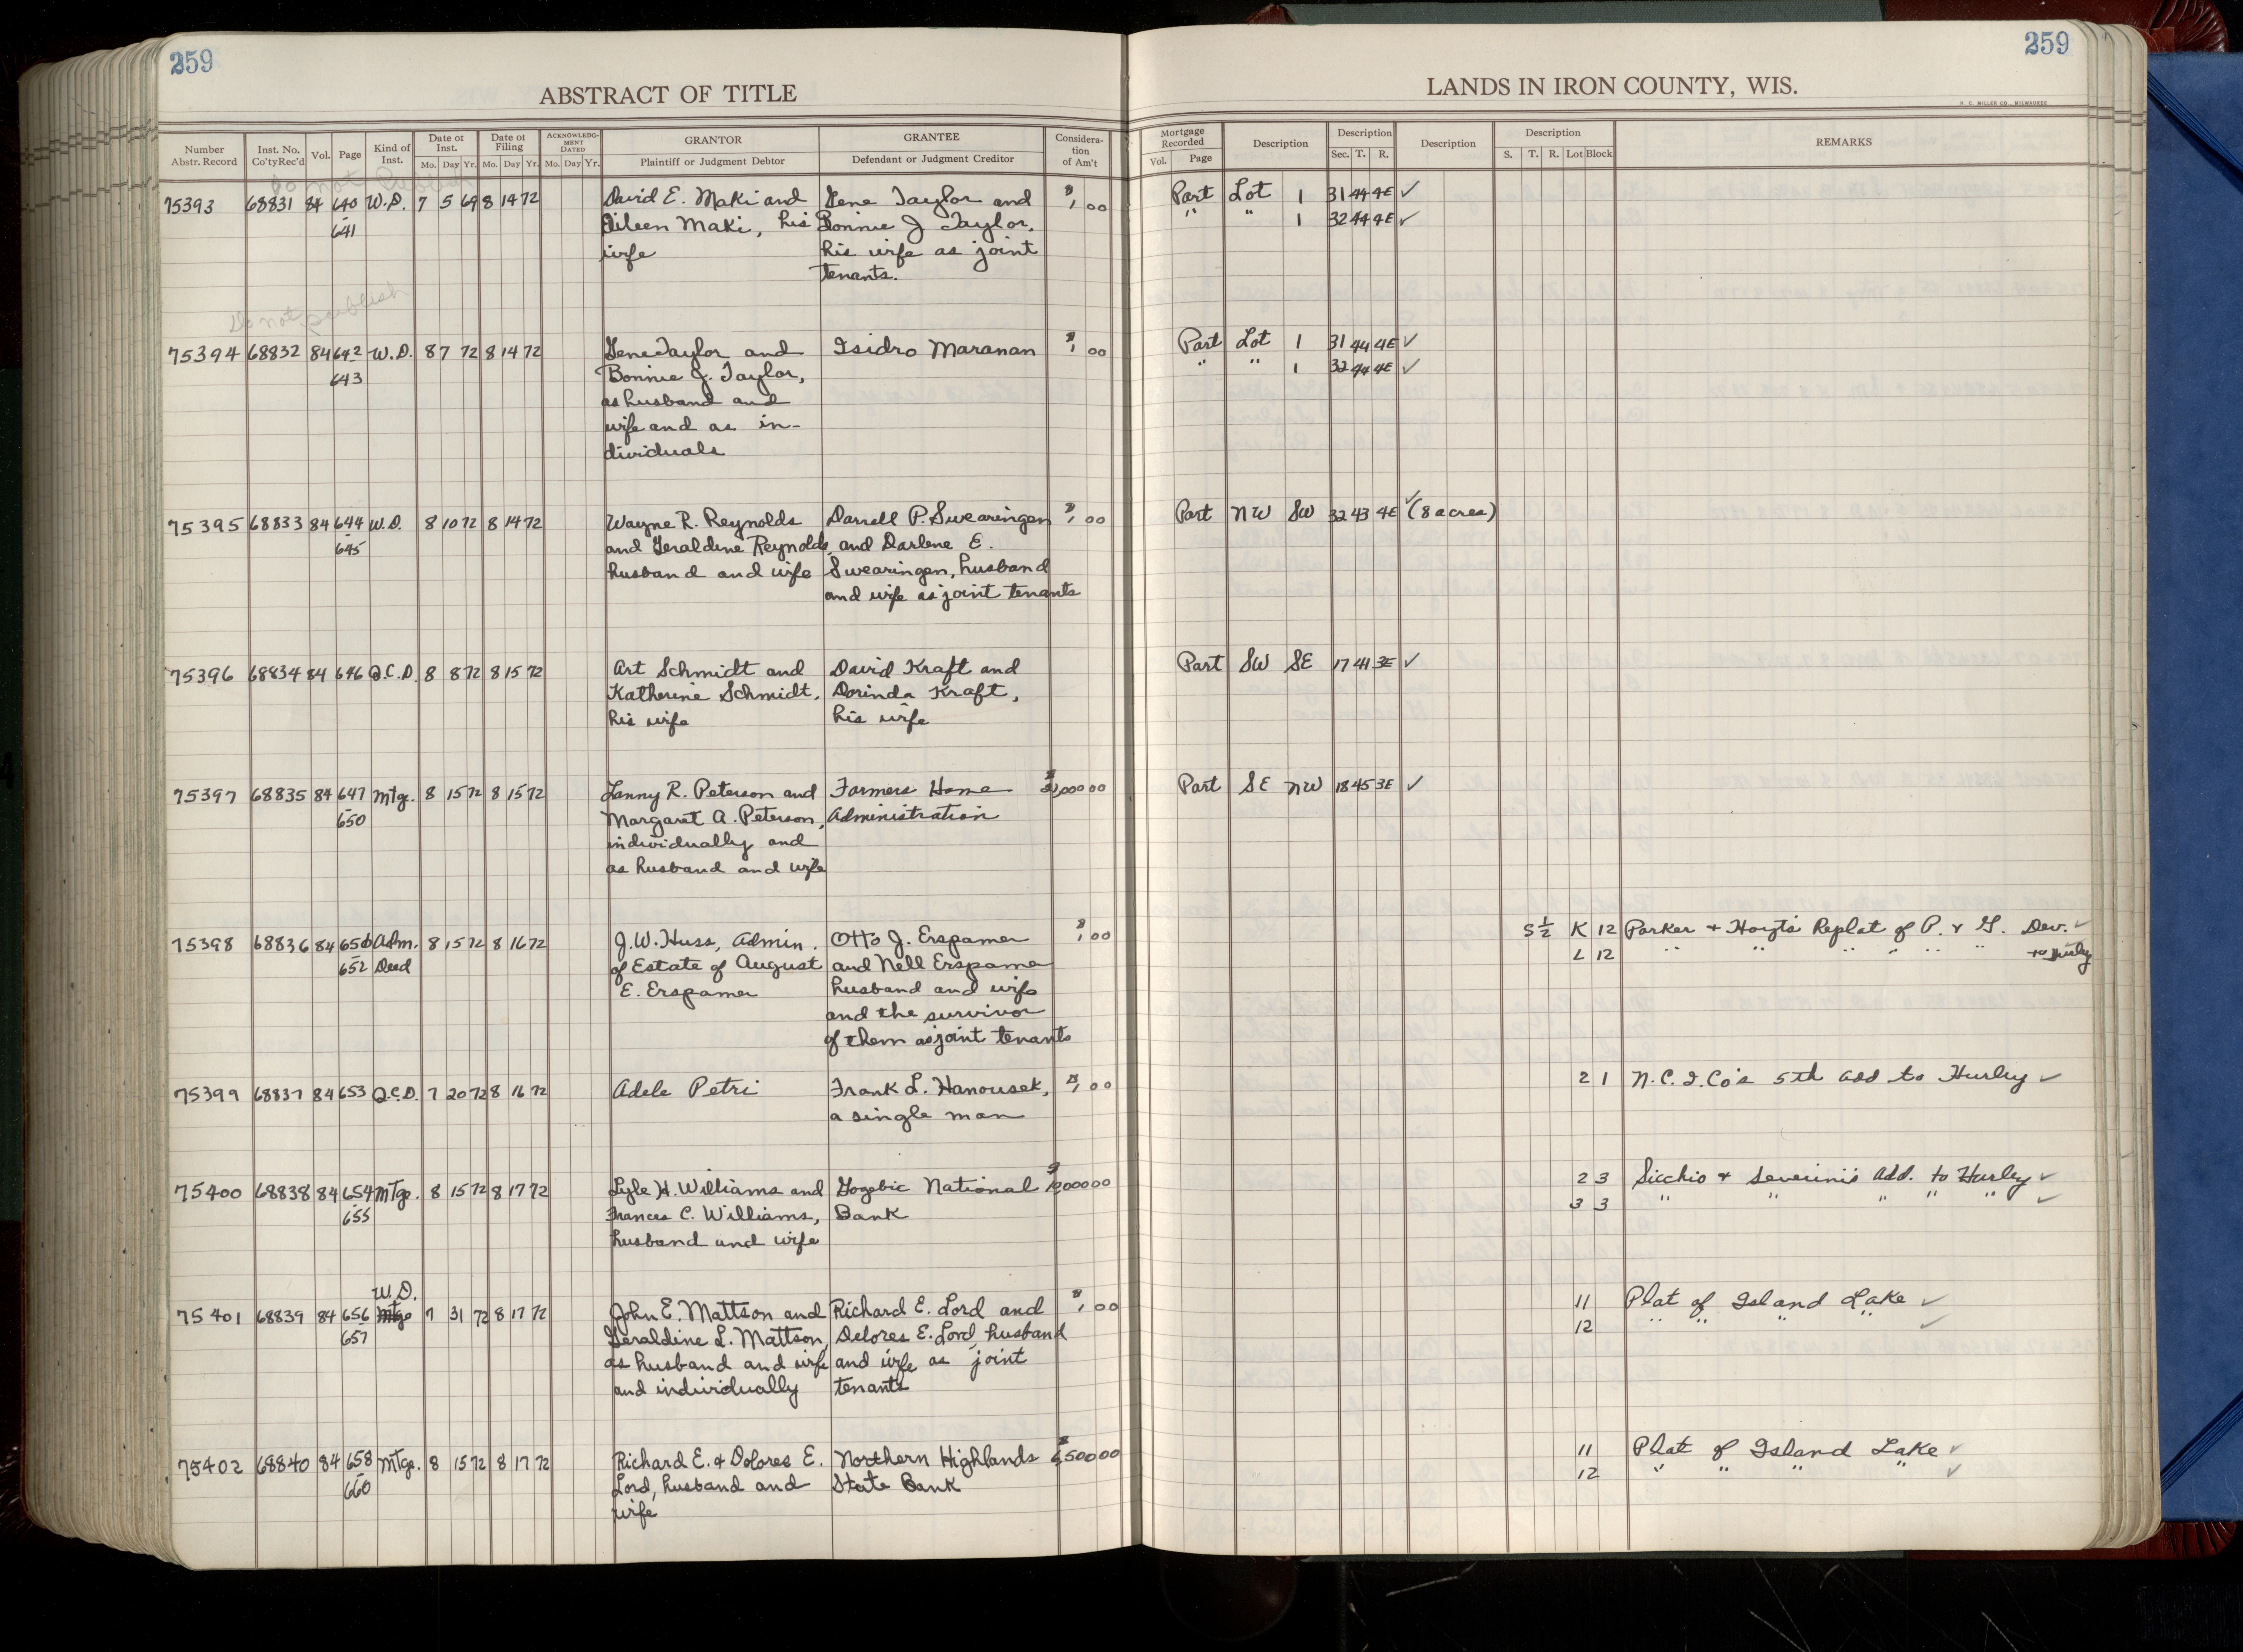 259
259
ABSTRACT OF TITLE
LANDS IN IRON COUNTY, WIS.
H. C. MILLER CO., MILWAUKEE
Number Abstr. Record | Inst. No. Co'ty Rec'd | Vol. | Page | Kind of Inst. | Date of Inst. Mo. Day Yr. | Date of Filing Mo. Day Yr. | ACKNOWLEDGMENT DATED Mo. Day Yr. | GRANTOR Plaintiff or Judgment Debtor | GRANTEE Defendant or Judgment Creditor | Consideration of Am't | Mortgage Recorded Vol. Page | Description | Description Sec. T. R. | Description | Description S. T. R. Lot Block | REMARKS
Do not Publish
75393 68831 84 640 W.D. 7 5 69 8 14 72 David E. Maki and Gene Taylor and $1,00 Part Lot 1 31 44 4E ✓
641 Eileen Maki, his Bonnie J Taylor, " " 1 32 44 4E ✓
wife his wife as joint
tenants.
Do not publish
75394 68832 84 642 W.D. 8 7 72 8 14 72 Gene Taylor and Isidro Maranan $1,00 Part Lot 1 31 44 4E ✓
643 Bonnie J. Taylor, " " 1 32 44 4E ✓
as husband and
wife and as in-
dividuals
75395 68833 84 644 W.D. 8 10 72 8 14 72 Wayne R. Reynolds Darrell P. Swearingen $1,00 Part NW SW 32 43 4E ✓ (8 acres)
645 and Geraldine Reynolds, and Darlene E.
husband and wife Swearingen, husband
and wife as joint tenants
75396 68834 84 646 Q.C.D. 8 8 72 8 15 72 Art Schmidt and David Kraft and Part SW SE 17 41 3E ✓
Katherine Schmidt, Dorinda Kraft,
his wife his wife
75397 68835 84 647 Mtg. 8 15 72 8 15 72 Lanny R. Peterson and Farmers Home 00000 Part SE NW 18 45 3E ✓
650 Margaret A. Peterson, Administration
individually and
as husband and wife
75398 68836 84 650 Adm. 8 15 72 8 16 72 J.W. Huss, Admin. Otto J. Erspamer $1,00 S ½ K 12 Parker + Hoyt's Replat of P. + G. Dev. ✓
652 Deed of Estate of August and Nell Erspamer L 12 " " " " " to Hurley
E. Erspamer husband and wife
and the survivor
of them as joint tenants
75399 68837 84 653 Q.C.D. 7 20 72 8 16 72 Adele Petri Frank L. Hanousek, $1,00 2 1 N.C.I.Co's 5th Add to Hurley ✓
a single man
75400 68838 84 654 Mtge. 8 15 72 8 17 72 Lyle H. Williams and Gogebic National 00000 2 3 Sicchio + Severini's Add. to Hurley ✓
655 Frances C. Williams, Bank 3 3 " " " " " ✓
husband and wife
W.D.
75401 68839 84 656 Mtge 7 31 72 8 17 72 John E. Mattson and Richard E. Lord and $1,00 11 Plat of Island Lake ✓
657 Geraldine L. Mattson, Delores E. Lord, husband 12 " " " " ✓
as husband and wife and wife as joint
and individually tenants
75402 68840 84 658 Mtge. 8 15 72 8 17 72 Richard E. + Dolores E. Northern Highlands 50000 11 Plat of Island Lake ✓
660 Lord, husband and State Bank 12 " " " " ✓
wife